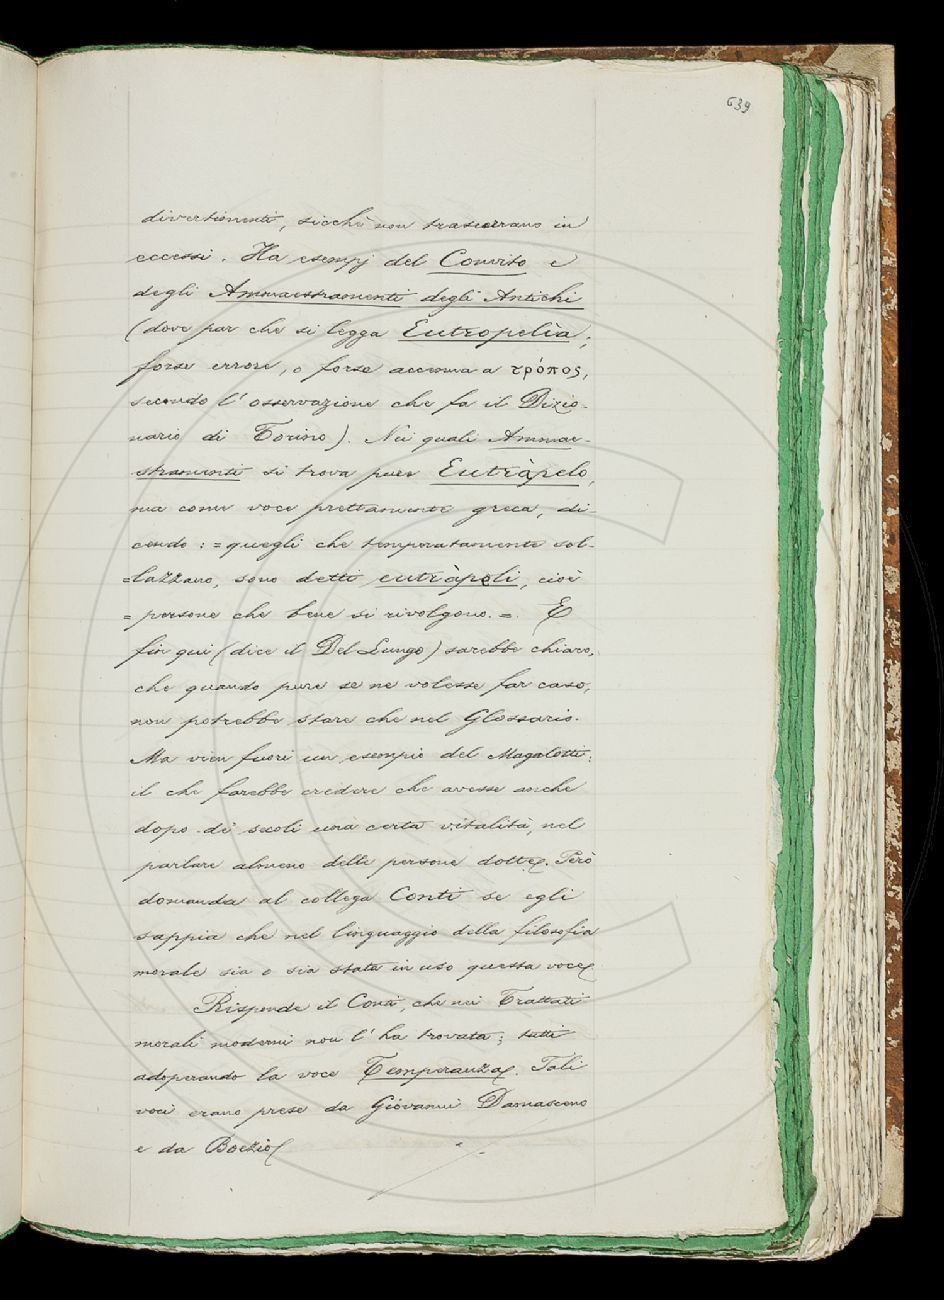 639
divertimenti, sicchè non trascorrano in
eccessi. Ha esempj del Convito e
degli Ammaestramenti degli Antichi
(dove par che si legga Eutropelìa,
forse errore, o forse accenna a τρόπος,
secondo l'osservazione che fa il Dizio-
nario di Torino). Nei quali Ammae-
stramenti si trova pure Eutràpelo,
ma come voce prettamente greca, di-
cendo: = quegli che temperatamente sol-
=lazzano, sono detti eutràpeli, cioè
= persone che bene si rivolgono. = E
fin qui (dice il Del Lungo) sarebbe chiaro,
che quando pure se ne volesse far caso,
non potrebbe stare che nel Glossario.
Ma vien fuori un esempio del Magalotti;
il che farebbe credere che avesse anche
dopo di secoli una certa vitalità, nel
parlare almeno delle persone dotte. Però
domanda al collega Conti se egli
sappia che nel linguaggio della filosofia
morale sia o sia stata in uso questa voce.
Risponde il Conti, che nei Trattati
morali moderni non l'ha trovata; tutti
adoperando la voce Temperanza. Tali
voci erano prese da Giovanni Damasceno
e da Boezio